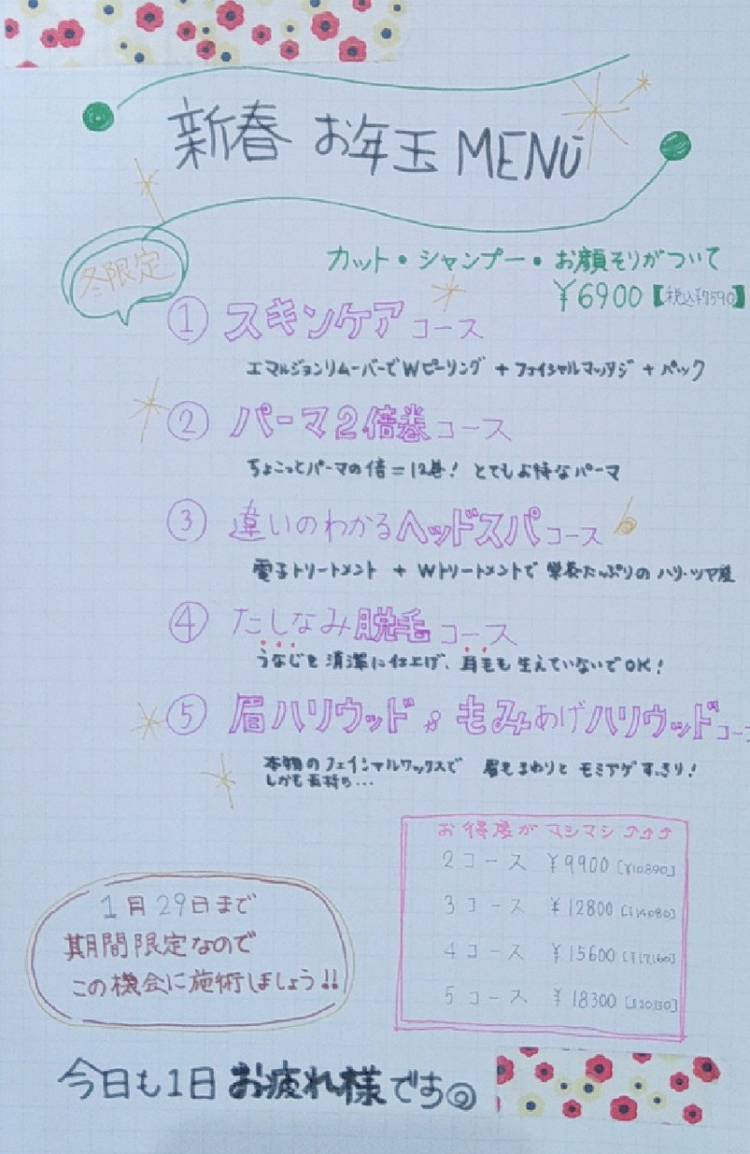 新春 お年玉 MENU
冬限定
カット・シャンプー・お顔そりがついて
¥6900【税込¥7590】
① スキンケアコース
エマルジョンリムーバーでWピーリング + フェイシャルマッサージ + パック
② パーマ2倍巻コース
ちょこっとパーマの倍=12巻! とてもお得なパーマ
③ 違いのわかるヘッドスパコース
電子トリートメント + Wトリートメントで 栄養たっぷりの ハリ・ツヤ髪
④ たしなみ脱毛コース
うなじを 清潔に仕上げ、耳毛も 生えていないでOK!
⑤ 眉ハリウッド & もみあげハリウッドコース
本物のフェイシャルワックスで 眉毛まわりと モミアゲすっきり!
しかも長持ち...
お得度が マシマシ ↑↑↑
2コース ¥9900 [¥10890]
3コース ¥12800 [¥14080]
4コース ¥15600 [¥17160]
5コース ¥18300 [¥20130]
1月29日まで
期間限定なので
この機会に施術しましょう!!
今日も1日 お疲れ様です